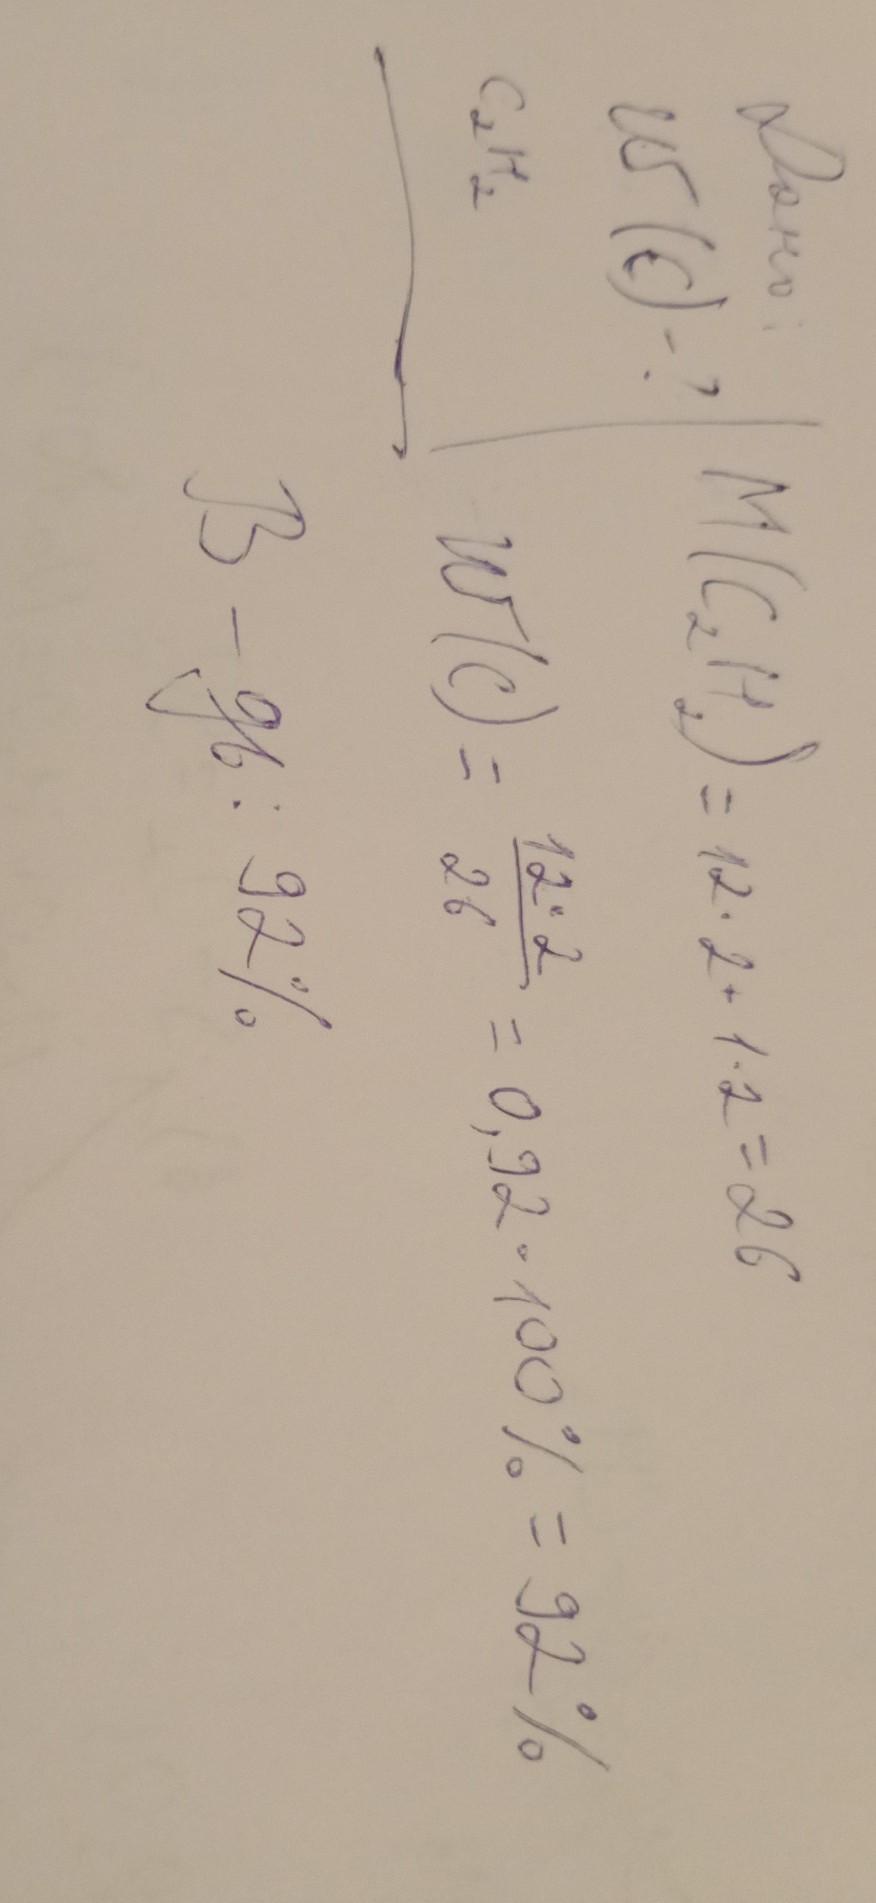 Дано:
W(C)-?
C₂H₂
M(C₂H₂) = 12·2+1·2=26
W(C) = 12·2/26 = 0,92·100% = 92%
В-дь: 92%